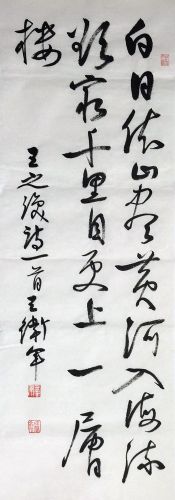 白日依山尽黄河入海流
欲穷千里目更上一层
楼
王之涣诗一首王衛军